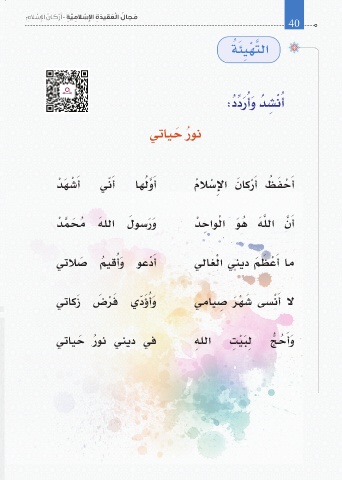 40
مجال العقيدة الإسلاميّة - أركان الإسلام
التَّهْيِئَةُ
أُنْشِدُ وَأُرَدِّدُ:
نورُ حَياتي
أَحْفَظُ أَرْكانَ الإِسْلامْ أَوَّلُها أَنّي أَشْهَدْ
أَنَّ اللَّهَ هُوَ الْواحدْ وَرَسولَ اللهَ مُحَمَّدْ
ما أَعْظَمَ ديني الْغالي أَدْعو وَأُقيمُ صَلاتي
لا أَنْسى شَهْرَ صِيامي وَأُؤَدّي فَرْضَ زَكاتي
وَأَحُجُّ لِبَيْتِ اللهِ في ديني نورُ حَياتي